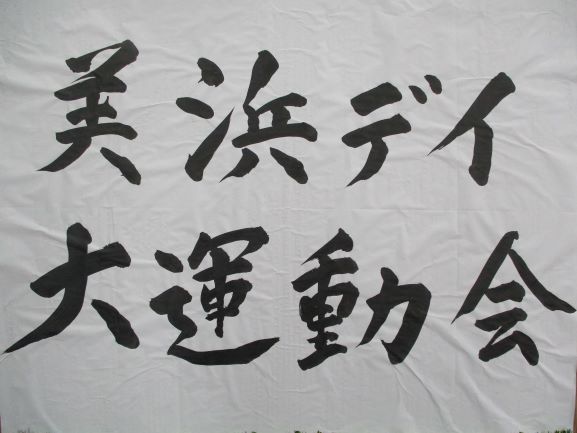 美浜デイ
大運動会